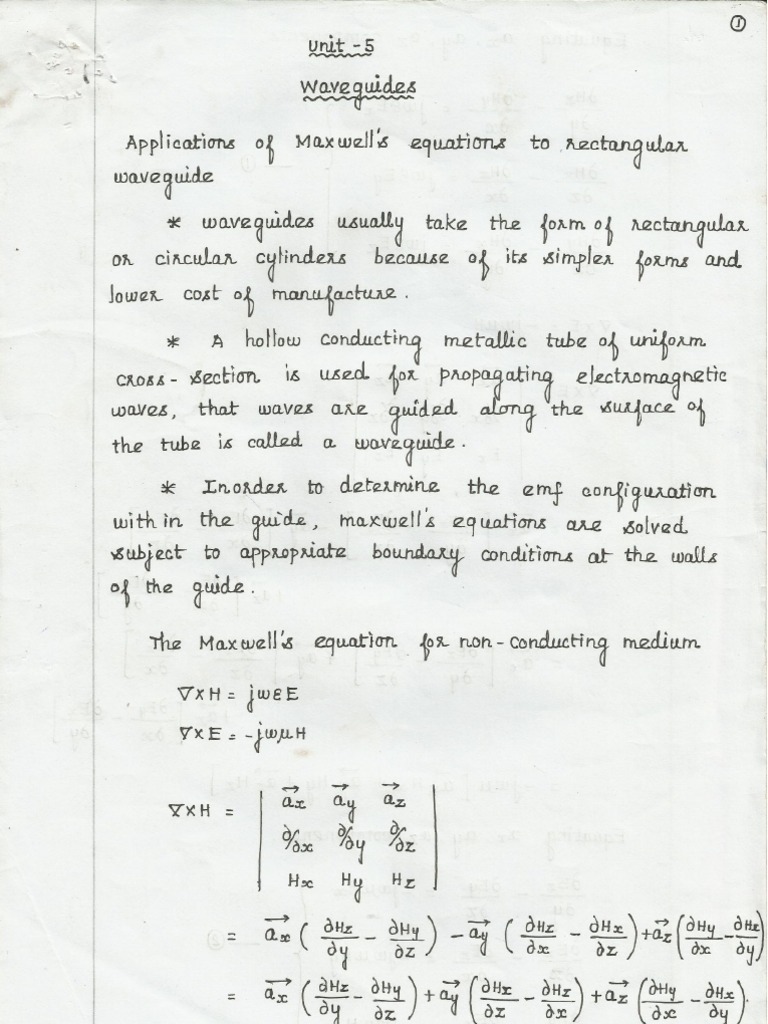 ①
Unit - 5
Waveguides
Applications of Maxwell's equations to rectangular
waveguide
* waveguides usually take the form of rectangular
or circular cylinders because of its simpler forms and
lower cost of manufacture.
* A hollow conducting metallic tube of uniform
cross-section is used for propagating electromagnetic
waves, that waves are guided along the surface of
the tube is called a waveguide.
* Inorder to determine the emf configuration
with in the guide, maxwell's equations are solved
subject to appropriate boundary conditions at the walls
of the guide.
The Maxwell's equation for non-conducting medium
∇×H = jωεE
∇×E = -jωμH
∇×H = | a⃗x a⃗y a⃗z |
| ∂/∂x ∂/∂y ∂/∂z |
| Hx Hy Hz |
= a⃗x (∂Hz/∂y - ∂Hy/∂z) - a⃗y (∂Hz/∂x - ∂Hx/∂z) + a⃗z (∂Hy/∂x - ∂Hx/∂y)
= a⃗x (∂Hz/∂y - ∂Hy/∂z) + a⃗y (∂Hx/∂z - ∂Hz/∂x) + a⃗z (∂Hy/∂x - ∂Hx/∂y).